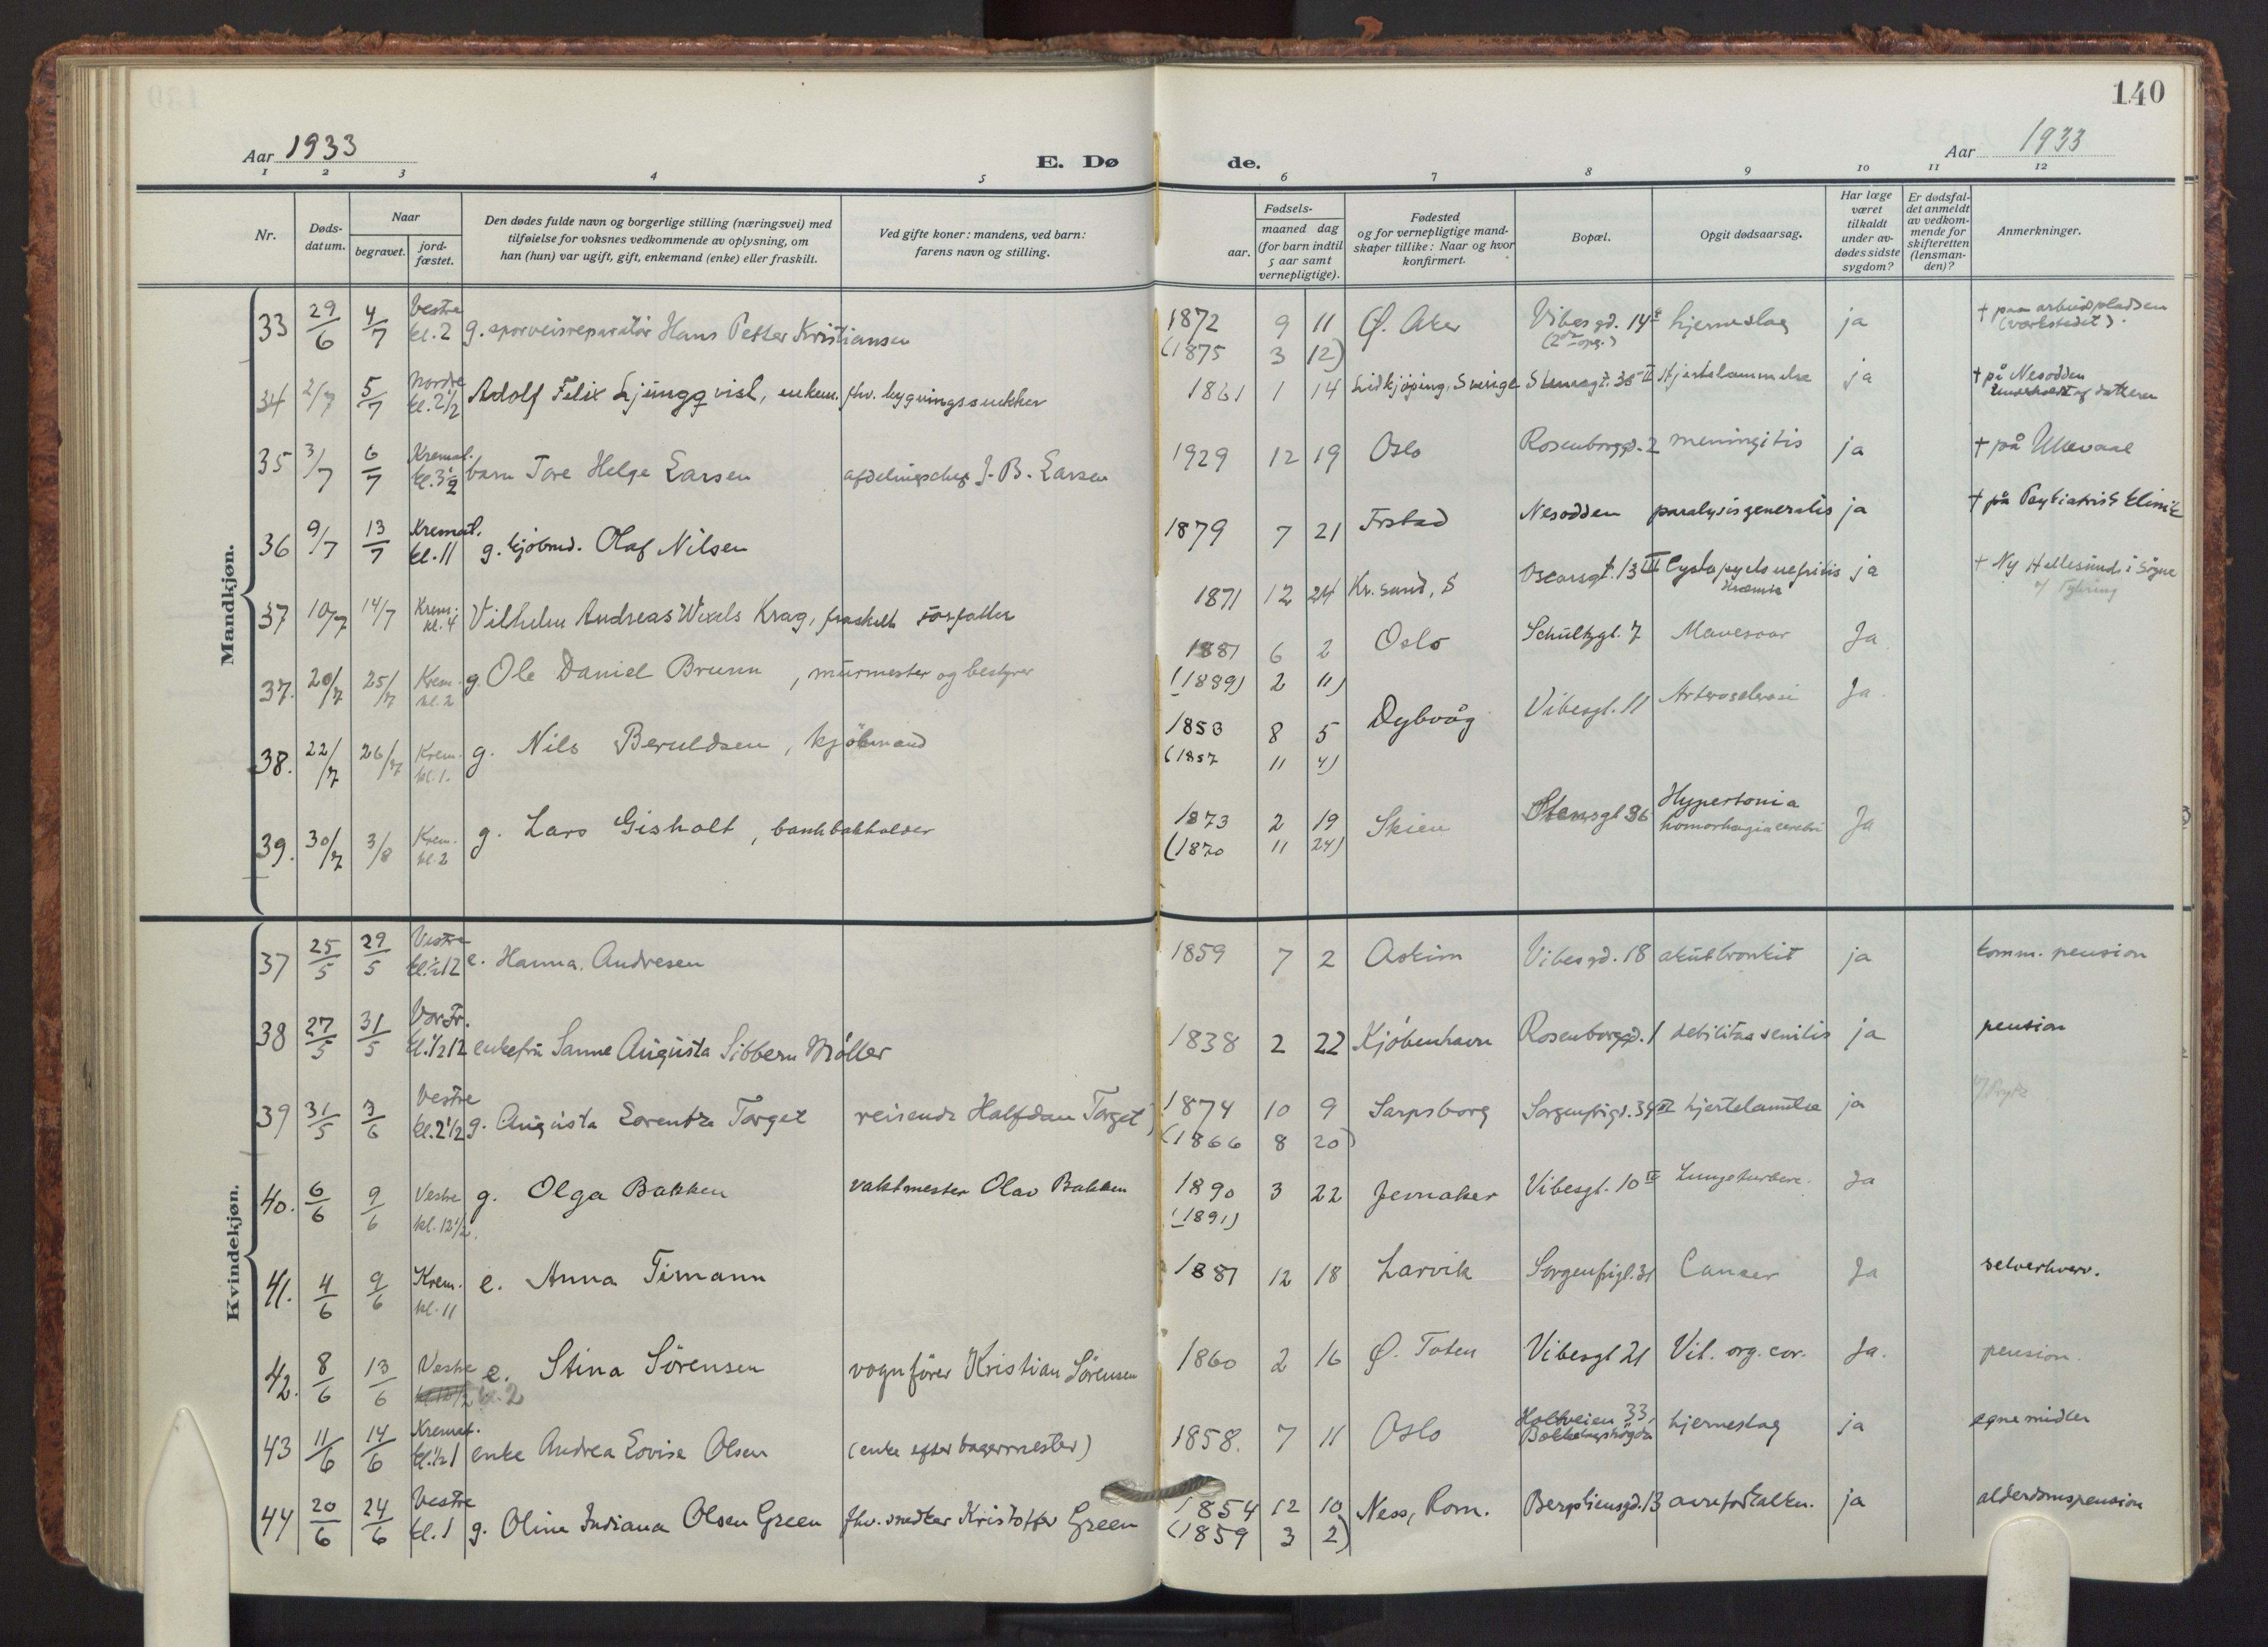 140
Aar 1933
E. Dø
de.
Aar 1933
1 2 3 4 5 6 7 8 9 10 11 12
Nr.
Døds-
datum.
Naar
begravet.
jord-
fæstet.
Den dødes fulde navn og borgerlige stilling (næringsvei) med
tilføielse for voksnes vedkommende av oplysning, om
han (hun) var ugift, gift, enkemand (enke) eller fraskilt.
Ved gifte koner: mandens, ved barn:
farens navn og stilling.
Fødsels-
aar.
maaned dag
(for barn indtil
5 aar samt
vernepligtige).
Fødested
og for vernepligtige mand-
skaper tillike: Naar og hvor
konfirmert.
Bopæl.
Opgit dødsaarsag.
Har læge
været
tilkaldt
under av-
dødes sidste
sygdom?
Er dødsfal-
det anmeldt
av vedkom-
mende for
skifteretten
(lensman-
den)?
Anmerkninger.
Mandkjøn.
33 29/6 4/7 Vestre kl. 2 g. sporveisreparatör Hans Petter Kristiansen 1872 9 11 Ø. Aker Vibesgd. 14 hjerneslag ja + paa arbeidspladsen
(værkstedet).
(1875 3 12)
34 2/7 5/7 Nordre kl. 2½ Adolf Felix Ljungqvist, enkem. fhv. bygningssnekker 1861 1 14 Lidkjöping, Sverige Stensgt. 36 II Hjertelammelse ja + på Nesodden
Underholdt af datteren
35 3/7 6/7 Kremat. kl. 3½ barn Tore Helge Larsen afdelingschef J. B. Larsen 1929 12 19 Oslo Rosenborggd. 2 meningitis ja + på Ullevaal
36 9/7 13/7 Kremat. kl. 11 g. kjöbmd. Olaf Nilsen 1879 7 21 Nesodden paralysis generalis ja + på Psykiatrisk klinik
37 10/7 14/7 Krem. kl. 4 Vilhelm Andreas Wexels Krag, fraskilt forfatter 1871 12 24 Kr.sand, S Oscarsgt. 13 III ja + Ny Hellesund i Søgne
37. 20/7 25/7 Krem. kl. 2 g. Ole Daniel Bruun, murmester og bestyrer 1881 6 2 Oslo Schultzgt. 7 Mavesaar Ja
(1889) 2 11)
38. 22/7 26/7 Krem. kl. 1. g. Nils Beruldsen, kjöbmand 1853 8 5 Dybvåg Vibesgt. 11 Arterosclerose Ja.
(1857 11 4)
39. 30/7 3/8 Krem. kl. 2 g. Lars Gisholt, bankbokholder 1873 2 19 Skien Stensgt 36 Hypertonia
homorhagia cerebri Ja
(1870 11 24)
Kvindekjøn.
37 25/5 29/5 Vestre kl. ½12 e. Hanna Andresen 1859 7 2 Askim Vibesgd. 18 akut bronkit ja komm. pension
38 27/5 31/5 Vor Fr. kl. ½12 enkefru Sanne Augusta Sibbern Möller 1838 2 22 Kjöbenhavn Rosenborggd. 1 debilitas senilis ja pension
39 31/5 3/6 Vestre kl. 2½ g. Augusta Lorentze Torget reisende Halfdan Torget 1874 10 9 Sarpsborg Sorgenfrigt. 34 II hjertelamelse ja
(1866 8 20)
40. 6/6 9/6 Vestre kl. 12½ g. Olga Bakken vaktmester Olav Bakken 1890 3 22 Jevnaker Vibesgt. 10 IV Lungetuberc. Ja
(1891)
41. 4/6 9/6 Krem. kl. 11 e. Anna Timann 1881 12 18 Larvik Sorgenfrigt. 31 Cancer Ja selverhverv.
42. 8/6 13/6 Vestre kl. 2 e. Stina Sörensen vognförer Kristian Sörensen 1860 2 16 Ø. Toten Vibesgt 21 Vit. org. cor. Ja. pension.
43 11/6 14/6 Kremat. kl. ½1 enke Andrea Lovise Olsen (enke efter bagermester) 1858. 7 11 Oslo Holtveien 33, hjerneslag ja egne midler
44 20/6 24/6 Vestre kl. 1 g. Oline Indiana Olsen Green fhv. snedker Kristoffer Green 1854 12 10 Ness, Rom. Bergsliensgd. 13 aareforkalkn. ja alderdomspension
(1859 3 2)